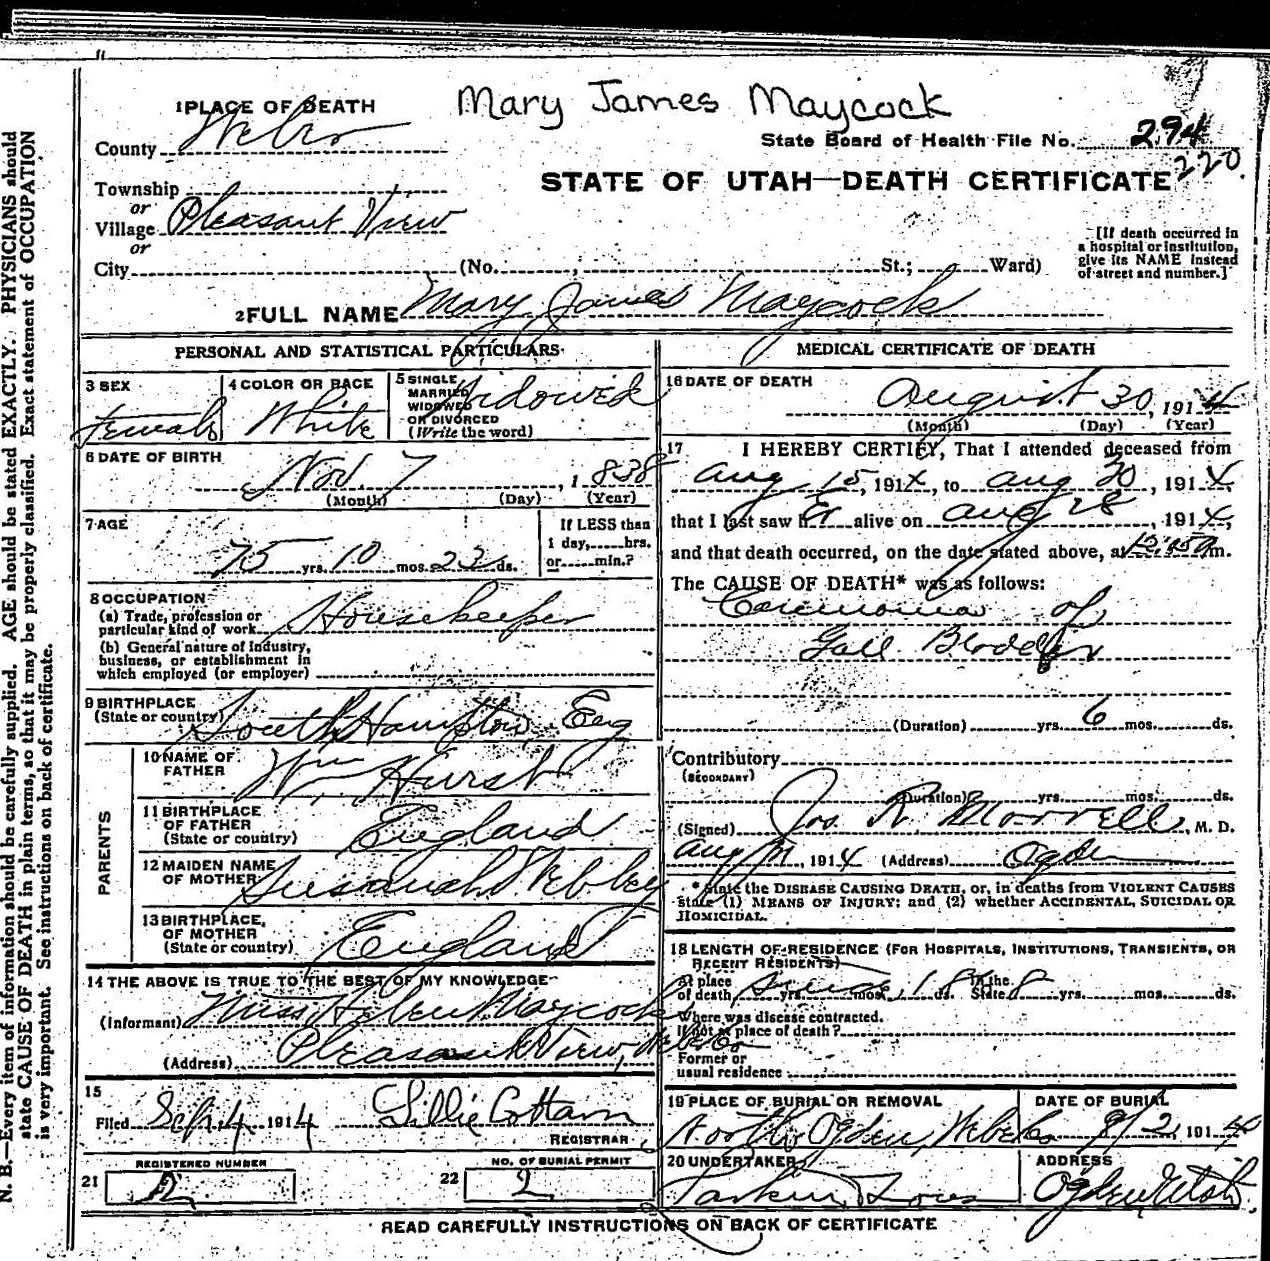 Mary James Maycock
1 PLACE OF DEATH
County Weber
State Board of Health File No. 294
220.
STATE OF UTAH—DEATH CERTIFICATE
Township
or
Village Pleasant View
or
City (No. , St.; Ward)
[If death occurred in a hospital or institution, give its NAME instead of street and number.]
2 FULL NAME Mary James Maycock
PERSONAL AND STATISTICAL PARTICULARS
3 SEX
Female
4 COLOR OR RACE
White
5 SINGLE MARRIED WIDOWED OR DIVORCED (Write the word)
Widowed
6 DATE OF BIRTH
Nov. 7, 1838
(Month) (Day) (Year)
7 AGE
75 yrs. 10 mos. 23 ds.
If LESS than 1 day, hrs. or min.?
8 OCCUPATION
(a) Trade, profession or particular kind of work Housekeeper
(b) General nature of industry, business, or establishment in which employed (or employer)
9 BIRTHPLACE
(State or country) South Hampton, Eng
PARENTS
10 NAME OF FATHER
Wm Hurst
11 BIRTHPLACE OF FATHER (State or country)
England
12 MAIDEN NAME OF MOTHER
Susanah Webley
13 BIRTHPLACE, OF MOTHER (State or country)
England
14 THE ABOVE IS TRUE TO THE BEST OF MY KNOWLEDGE
(Informant) Miss Helen Maycock
(Address) Pleasant View, Weber Co
15
Filed Sept. 4 1914 Lillie Cottam
REGISTRAR
21 REGISTERED NUMBER
22 NO. OF BURIAL PERMIT
2
MEDICAL CERTIFICATE OF DEATH
16 DATE OF DEATH
August 30, 1914
(Month) (Day) (Year)
17 I HEREBY CERTIFY, That I attended deceased from
Aug 15, 1914, to Aug 30, 1914,
that I last saw h er alive on Aug 28, 1914,
and that death occurred, on the date stated above, at m.
The CAUSE OF DEATH* was as follows:
of
Gall Bladder
(Duration) yrs. 6 mos. ds.
Contributory
(SECONDARY)
(Duration) yrs. mos. ds.
(Signed) Jos. R. Morrell, M. D.
Aug , 1914 (Address) Ogden
*State the DISEASE CAUSING DEATH, or, in deaths from VIOLENT CAUSES state (1) MEANS OF INJURY; and (2) whether ACCIDENTAL, SUICIDAL OR HOMICIDAL.
18 LENGTH OF RESIDENCE (FOR HOSPITALS, INSTITUTIONS, TRANSIENTS, OR RECENT RESIDENTS)
At place of death since yrs. mos. ds. In the State yrs. mos. ds.
Where was disease contracted. If not at place of death?
Former or usual residence
19 PLACE OF BURIAL OR REMOVAL
North Ogden, Weber Co
DATE OF BURIAL
9/2, 1914
20 UNDERTAKER
ADDRESS
Ogden, Utah
READ CAREFULLY INSTRUCTIONS ON BACK OF CERTIFICATE
N. B.—Every item of information should be carefully supplied. AGE should be stated EXACTLY. PHYSICIANS should
state CAUSE OF DEATH in plain terms, so that it may be properly classified. Exact statement of OCCUPATION
is very important. See instructions on back of certificate.